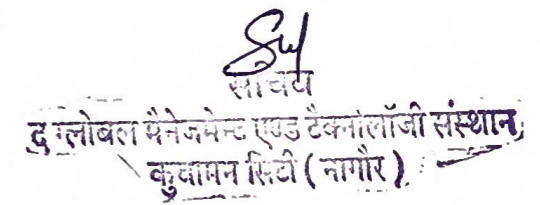 सचिव
द ग्लोबल मैनेजमेन्ट एण्ड टैक्नोलॉजी संस्थान
कुचामन सिटी ( नागौर )